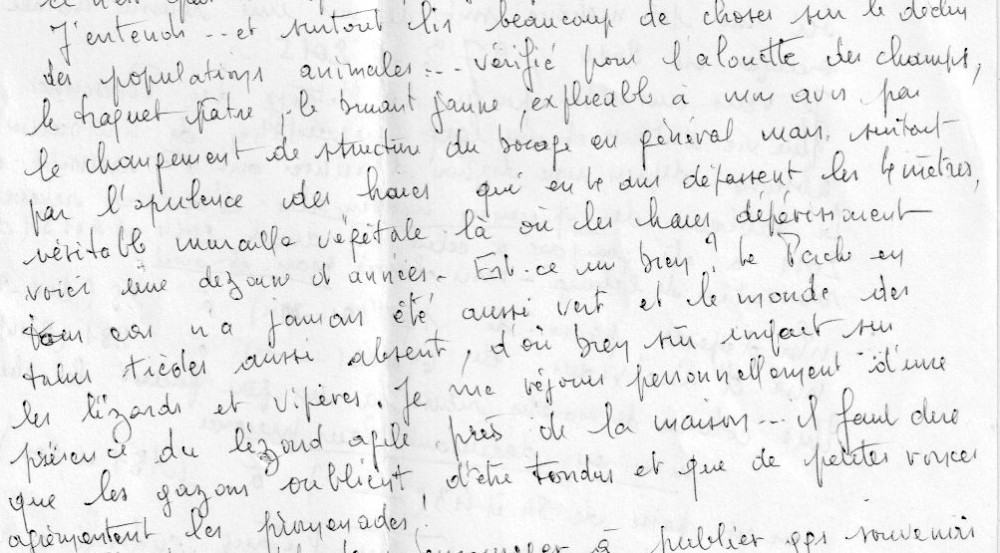 J'entends... et surtout lis beaucoup de choses sur le déclin
des populations animales... vérifié pour l'alouette des champs,
le traquet pâtre, le bruant jaune, explicable à mon avis par
le changement de structure du bocage en général mais surtout
par l'opulence des haies qui en 10 ans dépassent les 4 mètres,
véritable muraille végétale là où les haies dépérissaient
voici une dizaine d'années. Est-ce un bien? Le Perche en
tous cas n'a jamais été aussi vert et le monde des
talus tièdes aussi absent, d'où bien sûr impact sur
les lézards et vipères. Je me réjouis personnellement d'une
présence du lézard agile près de la maison... il faut dire
que les gazons oublient d'être tondus et que de petites ronces
agrémentent les promenades.
à publier ses souvenirs